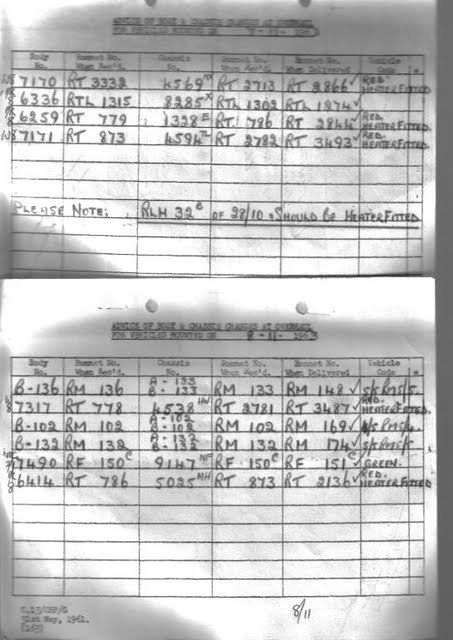 ADVICE OF BODY & CHASSIS CHANGES AT OVERHAUL
FOR VEHICLES MOUNTED ON 7-11- 1963
Body No. Bonnet No. When Rec'd. Chassis No. Bonnet No. When Rec'd. Bonnet No. When Delivered Vehicle Code *
7170 RT 3332 4569 RT 2713 RT 2866 ✓ RED. HEATER FITTED
6336 RTL 1315 8285 X RTL 1302 RTL 1274 ✓
6259 RT 779 1328 E RT 786 RT 2844 ✓ RED. HEATER FITTED.
7171 RT 873 4594 RT 2782 RT 3493 ✓ RED. HEATER FITTED.
PLEASE NOTE: RLH 32 B OF 28/10 : SHOULD BE HEATER FITTED
ADVICE OF BODY & CHASSIS CHANGES AT OVERHAUL
FOR VEHICLES MOUNTED ON 8-11- 1963
Body No. Bonnet No. When Rec'd. Chassis No. Bonnet No. When Rec'd. Bonnet No. When Delivered Vehicle Code *
B-136 RM 136 A-133 B-133 RM 133 RM 148 ✓
7317 RT 778 4538 HW RT 2781 RT 3487 ✓ RED. HEATER FITTED.
B-102 RM 102 A-102 B-102 RM 102 RM 169 ✓
B-132 RM 132 A-132 B-132 RM 132 RM 174 ✓
7490 RF 150 C 9147 NF RF 150 C RF 151 C ✓ GREEN.
6414 RT 786 5025 MH RT 873 RT 2136 ✓ RED. HEATER FITTED
31st May, 1961.
(163)
8/11